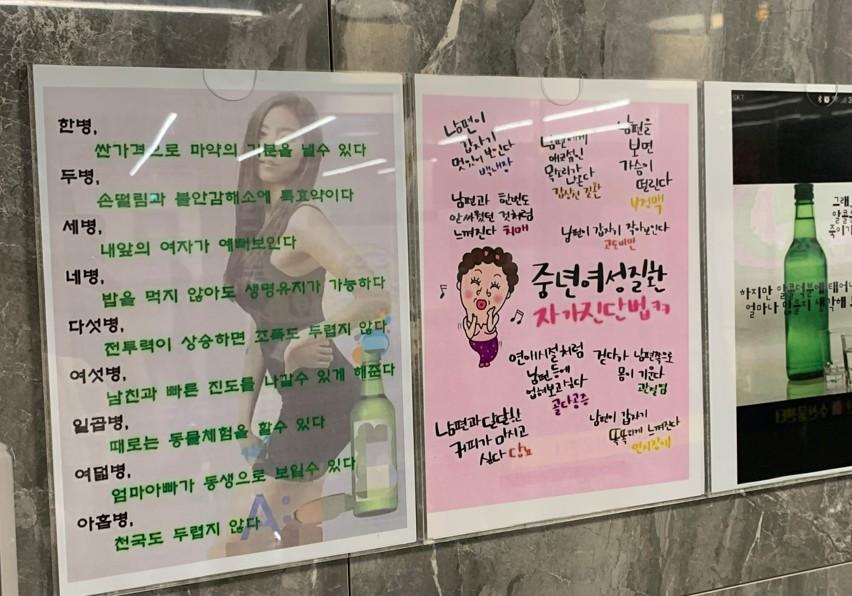 한병,
싼가격으로 마약의 기분을 낼수 있다
두병,
손떨림과 불안감해소에 특효약이다
세병,
내앞의 여자가 예뻐보인다
네병,
밥을 먹지 않아도 생명유지가 가능하다
다섯병,
전투력이 상승하면 조폭도 두렵지 않다
여섯병,
남친과 빠른 진도를 나갈수 있게 해준다
일곱병,
때로는 동물체험을 할수 있다
여덟병,
엄마아빠가 동생으로 보일수 있다
아홉병,
천국도 두렵지 않다
남편이
갑자기
멋있어 보인다
백내장
남편에게
애교섞인
목소리가 나온다
갑상선 질환
남편을
보면
가슴이
떨린다
부정맥
남편과 한번도
안싸웠던 것처럼
느껴진다 치매
남편이 갑자기 작아보인다
고도비만
중년여성질환
자가진단법ㅋㅋ
연애시절처럼
남편등에
업혀보고싶다
골다공증
걷다가 남편쪽으로
몸이 기운다
관절염
남편과 달달한
커피가 마시고
싶다 당뇨
남편이 갑자기
똑똑하게 느껴진다
인지장애
SKT
그래,
알콜은
죽이기
하지만 알콜덕분에 태어난
얼마나 많을지 생각해